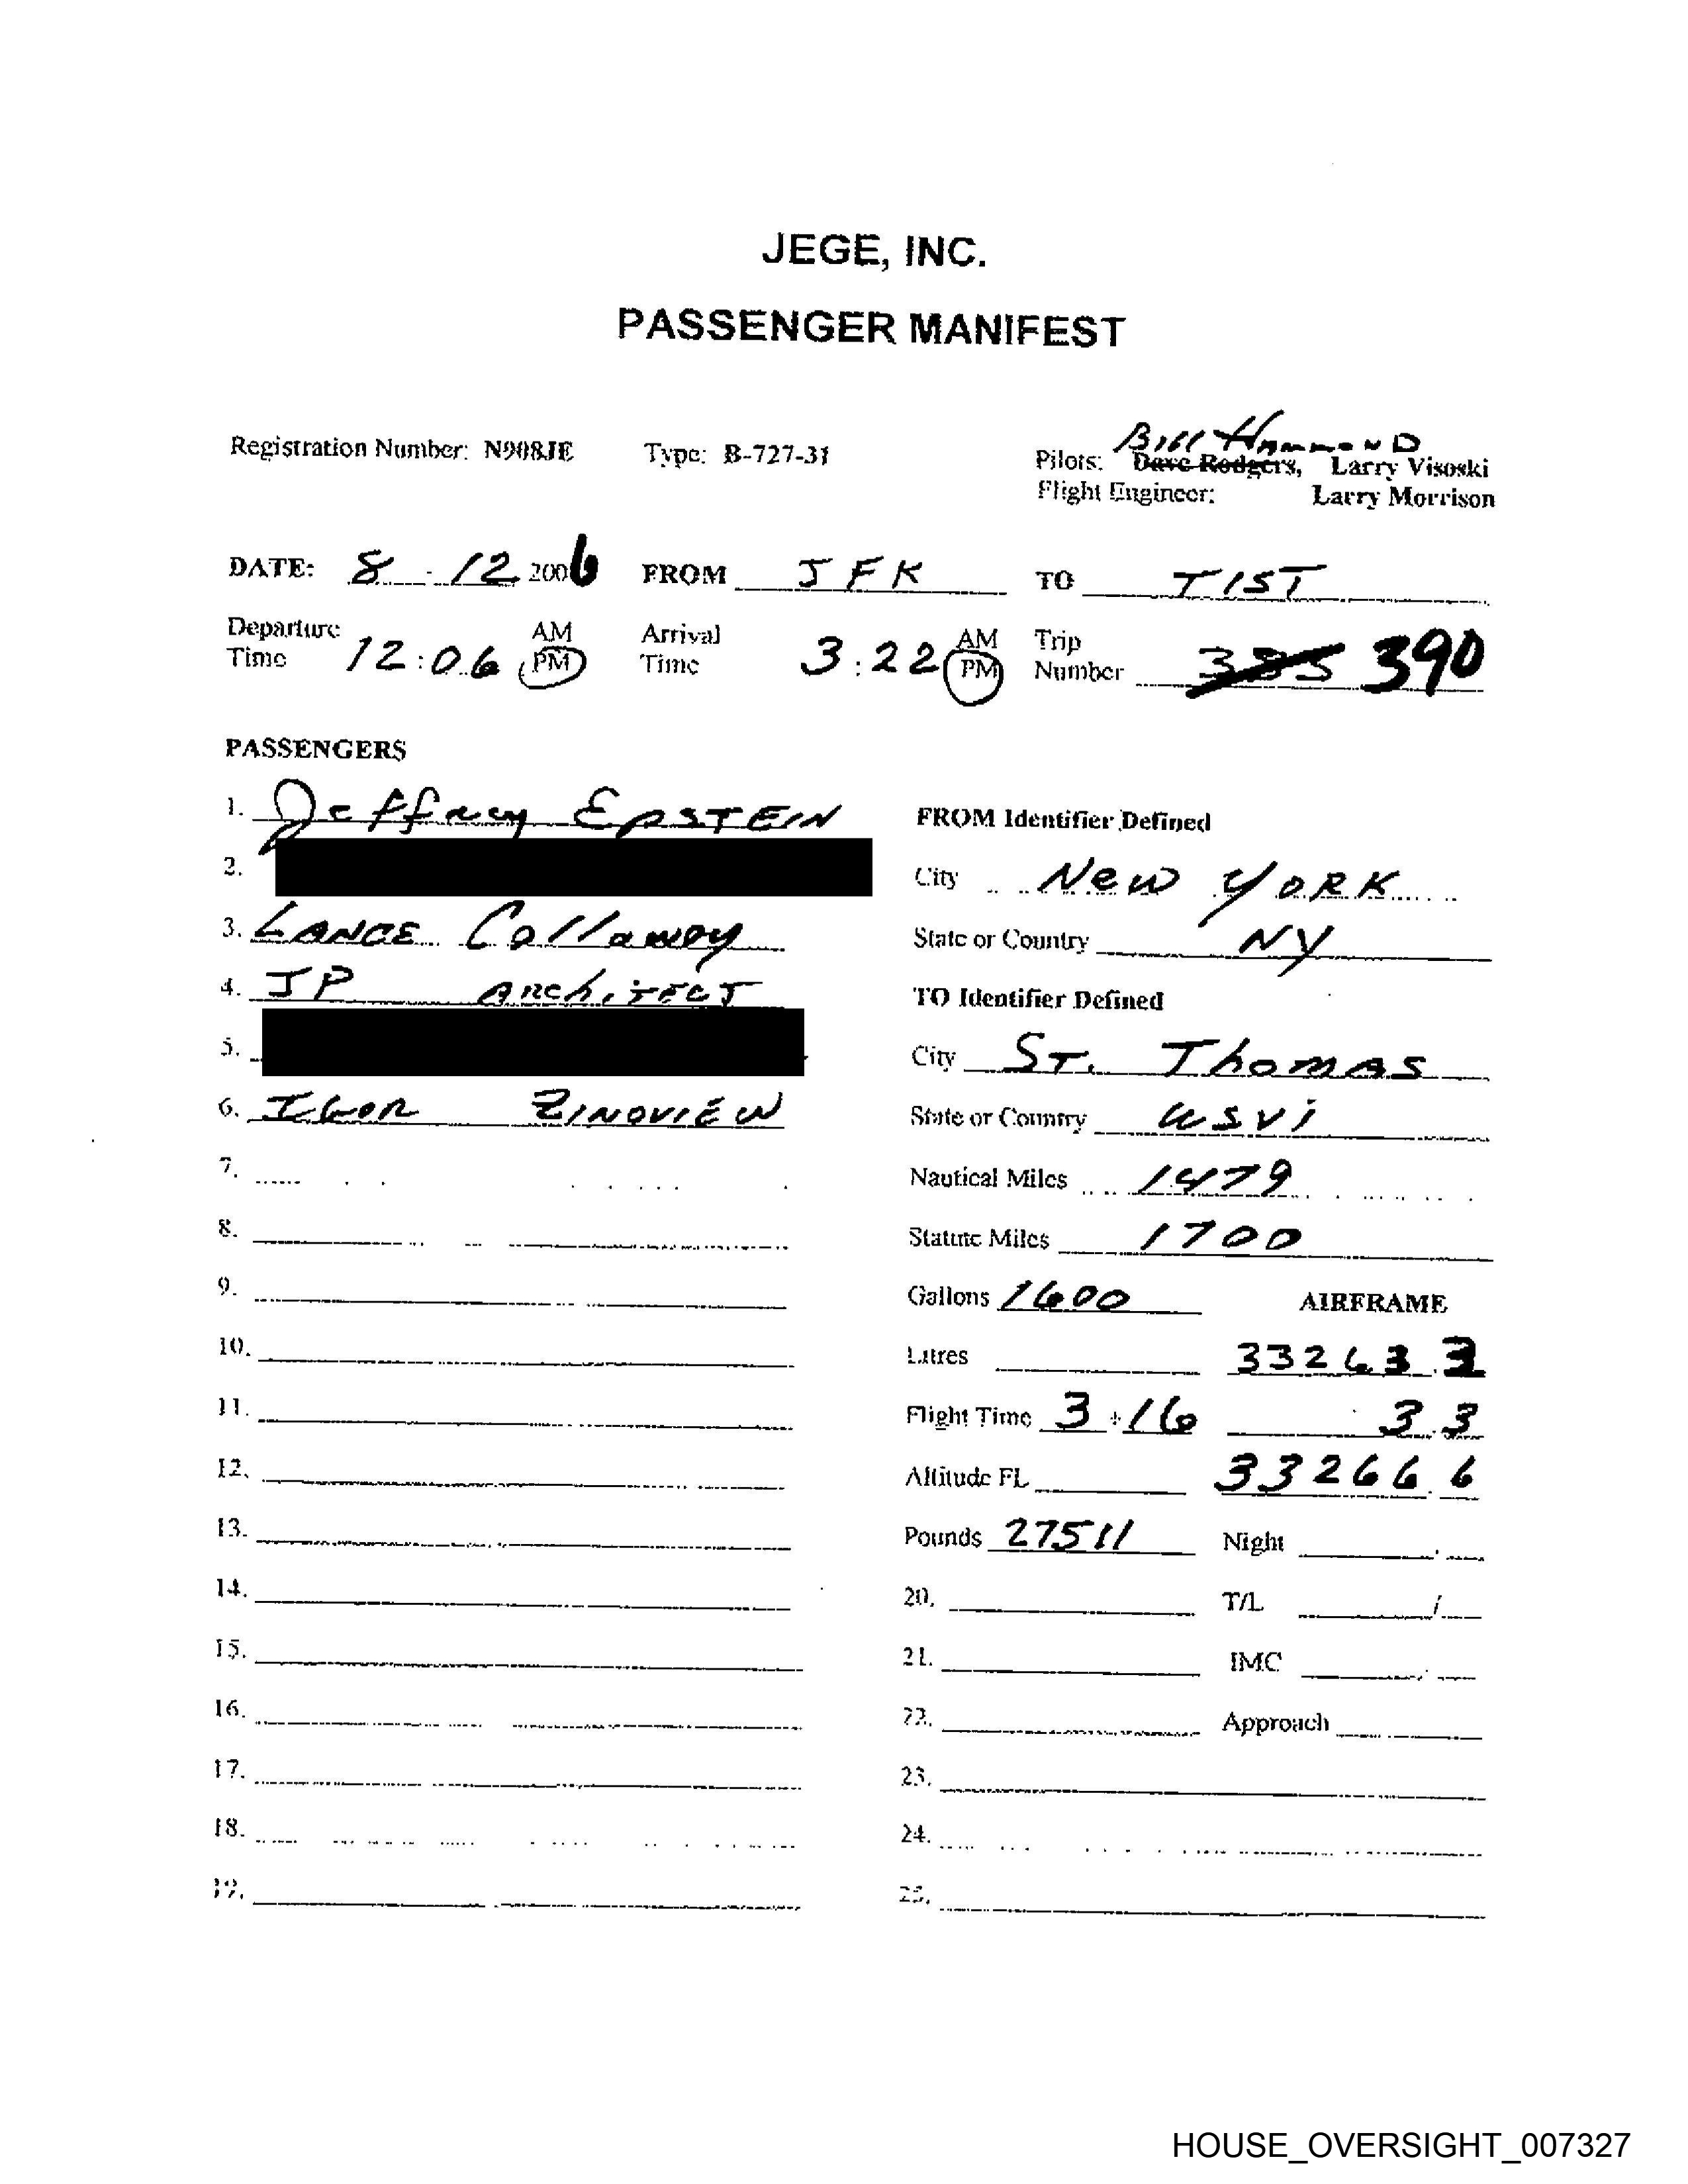 JEGE, INC.
PASSENGER MANIFEST
Bill Hammond
Registration Number: N908JE Type: B-727-31 Pilots: Dave Rodgers, Larry Visoski
Flight Engineer: Larry Morrison
DATE: 8 - 12 2006 FROM JFK TO TIST
Departure Time 12:06 AM PM Arrival Time 3:22 AM PM Trip Number 385 390
PASSENGERS
1. Jeffrey EPSTEIN
2.
3. LANCE Callaway
4. JP ArchitECT
5.
6. IGOR ZINOVIEW
7.
8.
9.
10.
11.
12.
13.
14.
15.
16.
17.
18.
19.
FROM Identifier Defined
City New YORK
State or Country NY
TO Identifier Defined
City ST. Thomas
State or Country USVI
Nautical Miles 1479
Statute Miles 1700
Gallons 1600 AIRFRAME
Litres 33263.3
Flight Time 3+16 3.3
Altitude FL 33266.6
Pounds 27511 Night
20. T/L /
21. IMC
22. Approach
23.
24.
25.
HOUSE_OVERSIGHT_007327